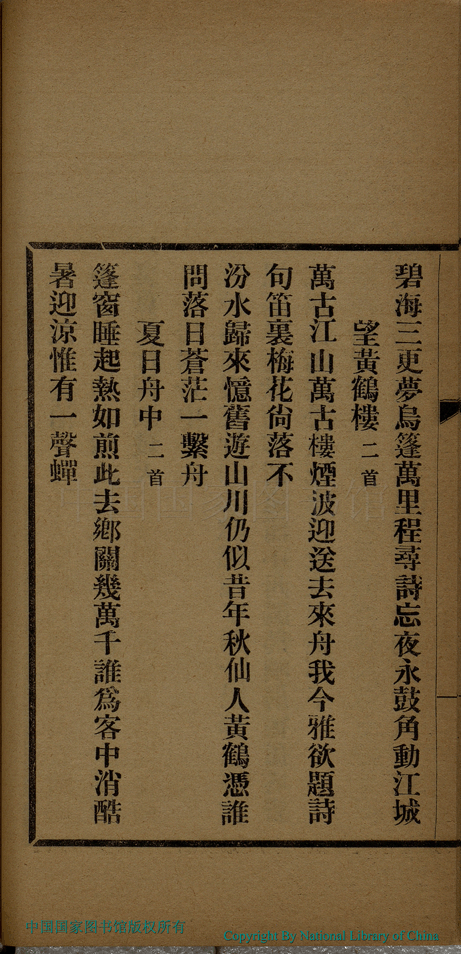 碧海三更夢烏篷萬里程尋詩忘夜永鼓角動江城
望黃鶴樓二首
萬古江山萬古樓煙波迎送去來舟我今雅欲題詩
句笛裏梅花尙落不
汾水歸來憶舊遊山川仍似昔年秋仙人黃鶴憑誰
問落日蒼茫一繫舟
夏日舟中二首
篷窗睡起熱如煎此去鄉關幾萬千誰爲客中消酷
暑迎涼惟有一聲蟬
中国国家图书馆
中国国家图书馆版权所有
Copyright By National Library of China